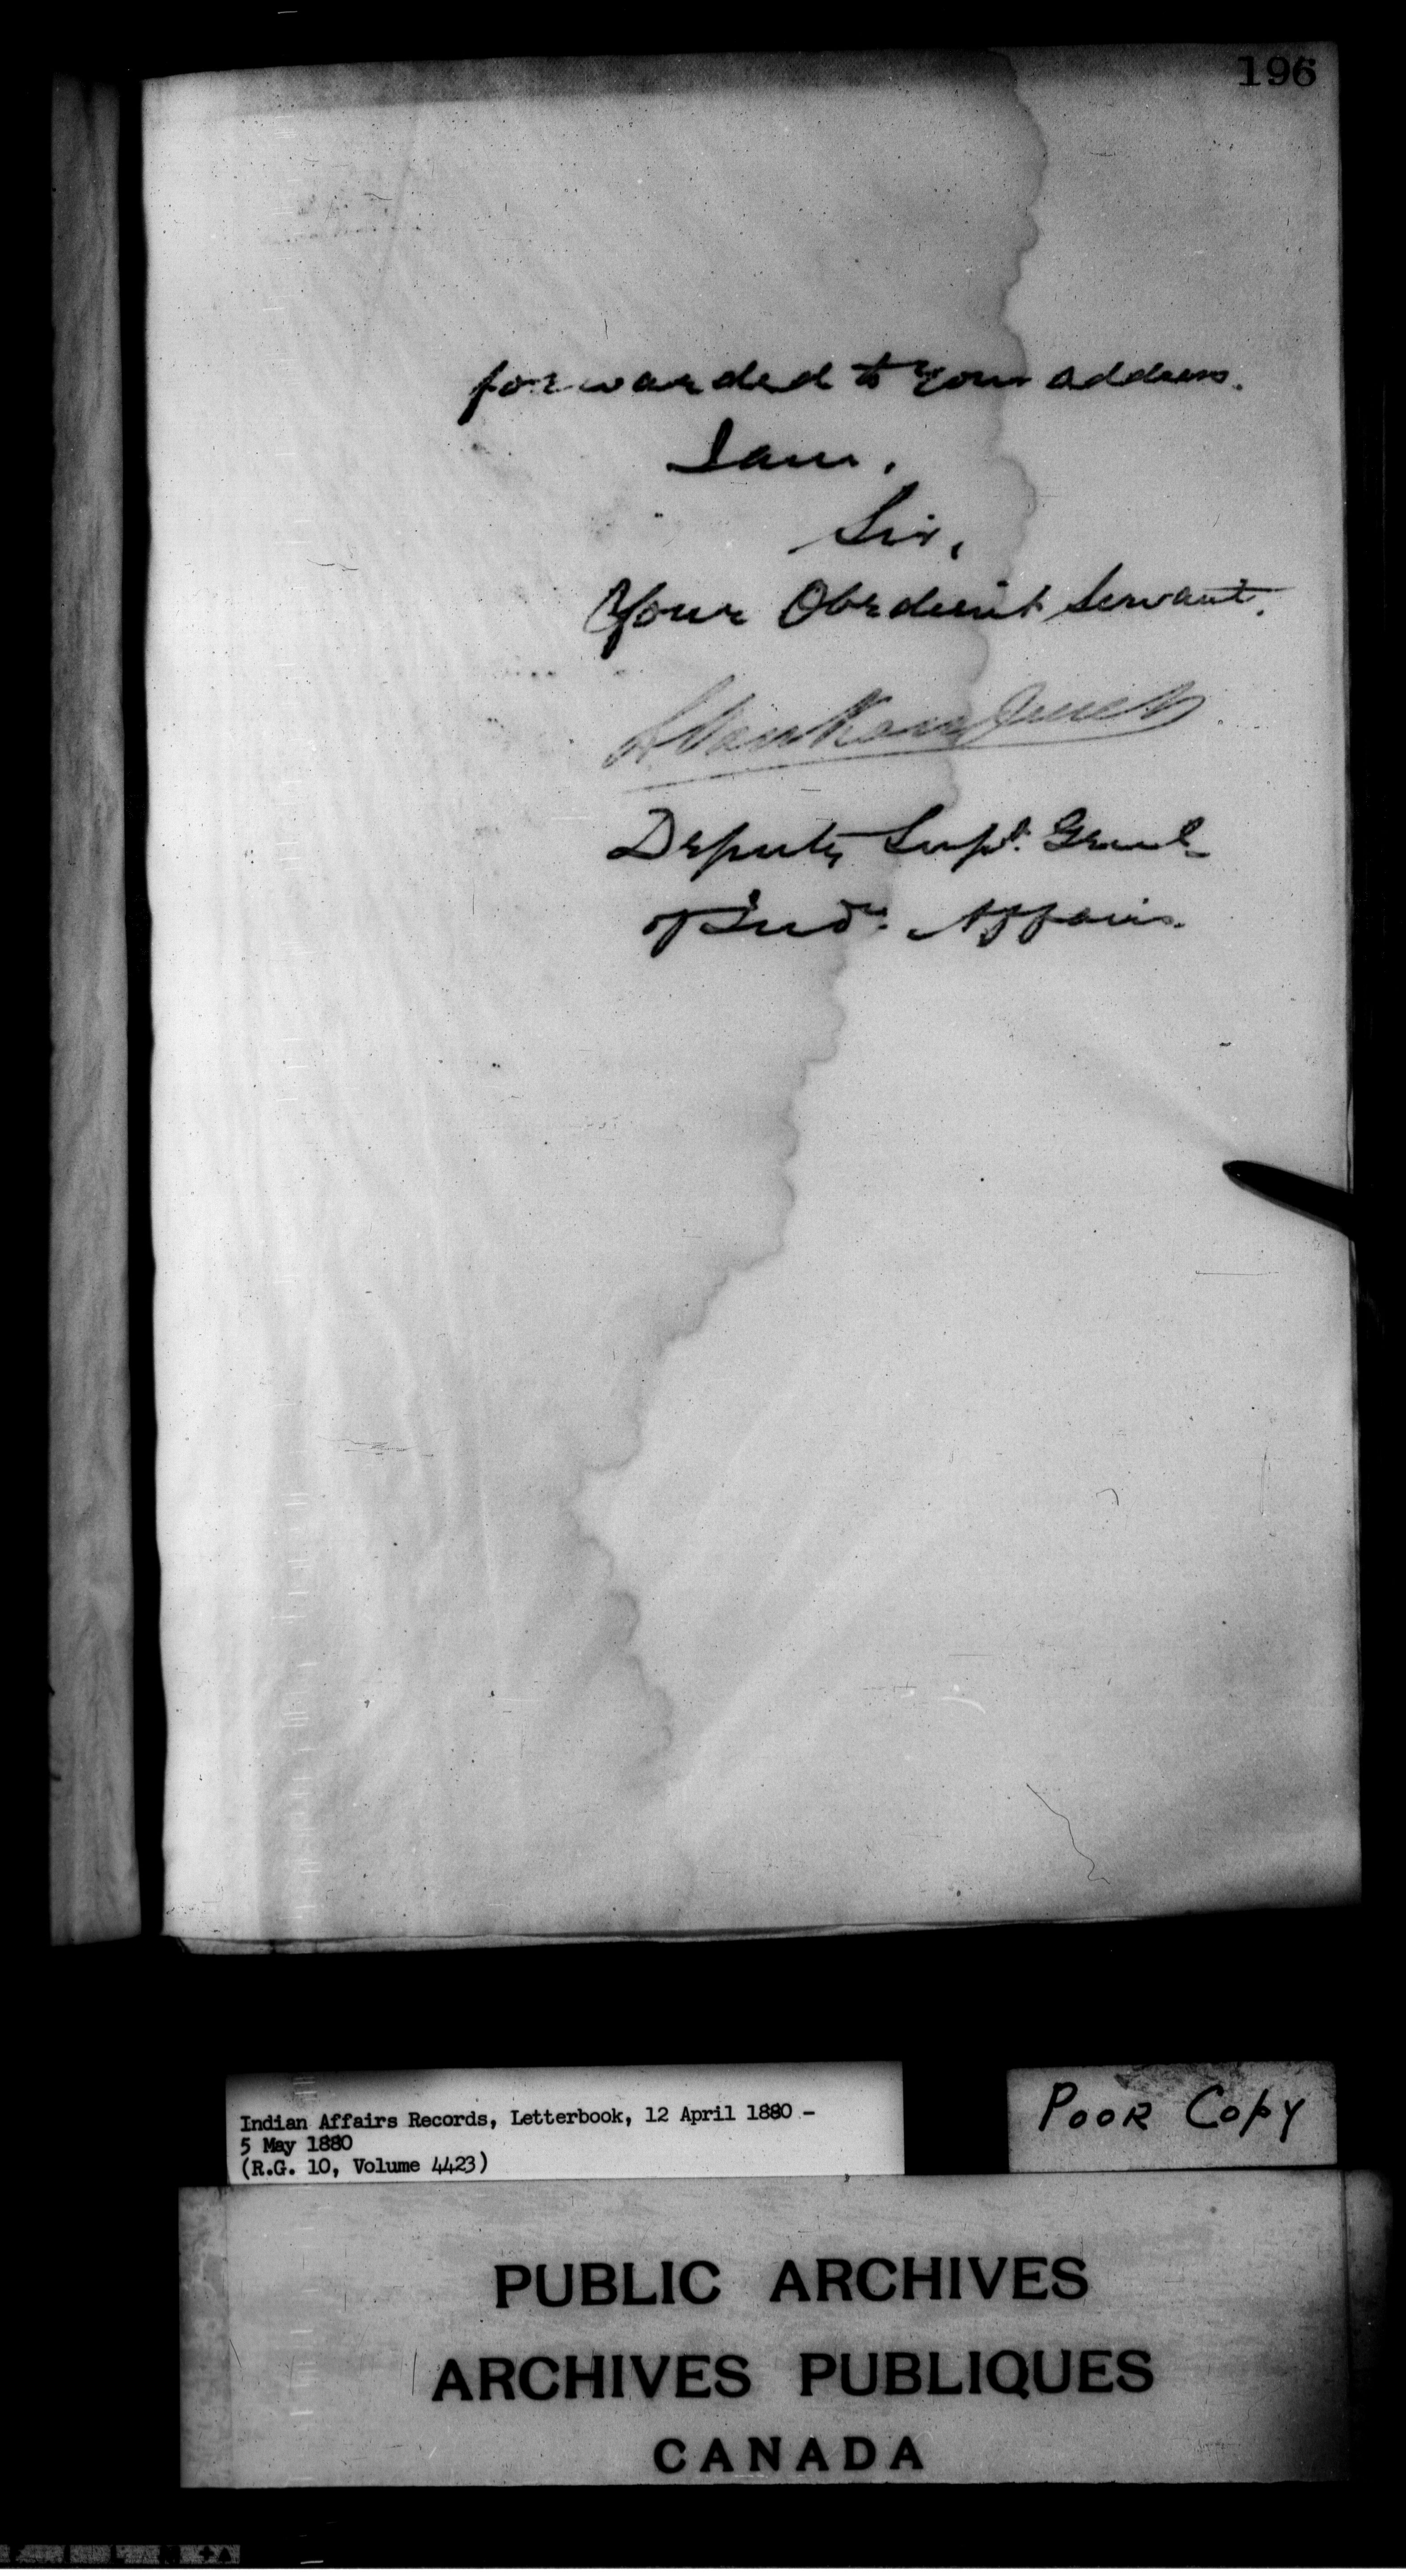 196
forwarded to your address.
I am.
Sir,
Your Obedient Servant.
L VanKoughnet
Deputy Supt. Genl
of Indn. Affairs.
Indian Affairs Records, Letterbook, 12 April 1880 -
5 May 1880
(R.G. 10, Volume 4423)
POOR COPY
PUBLIC ARCHIVES
ARCHIVES PUBLIQUES
CANADA